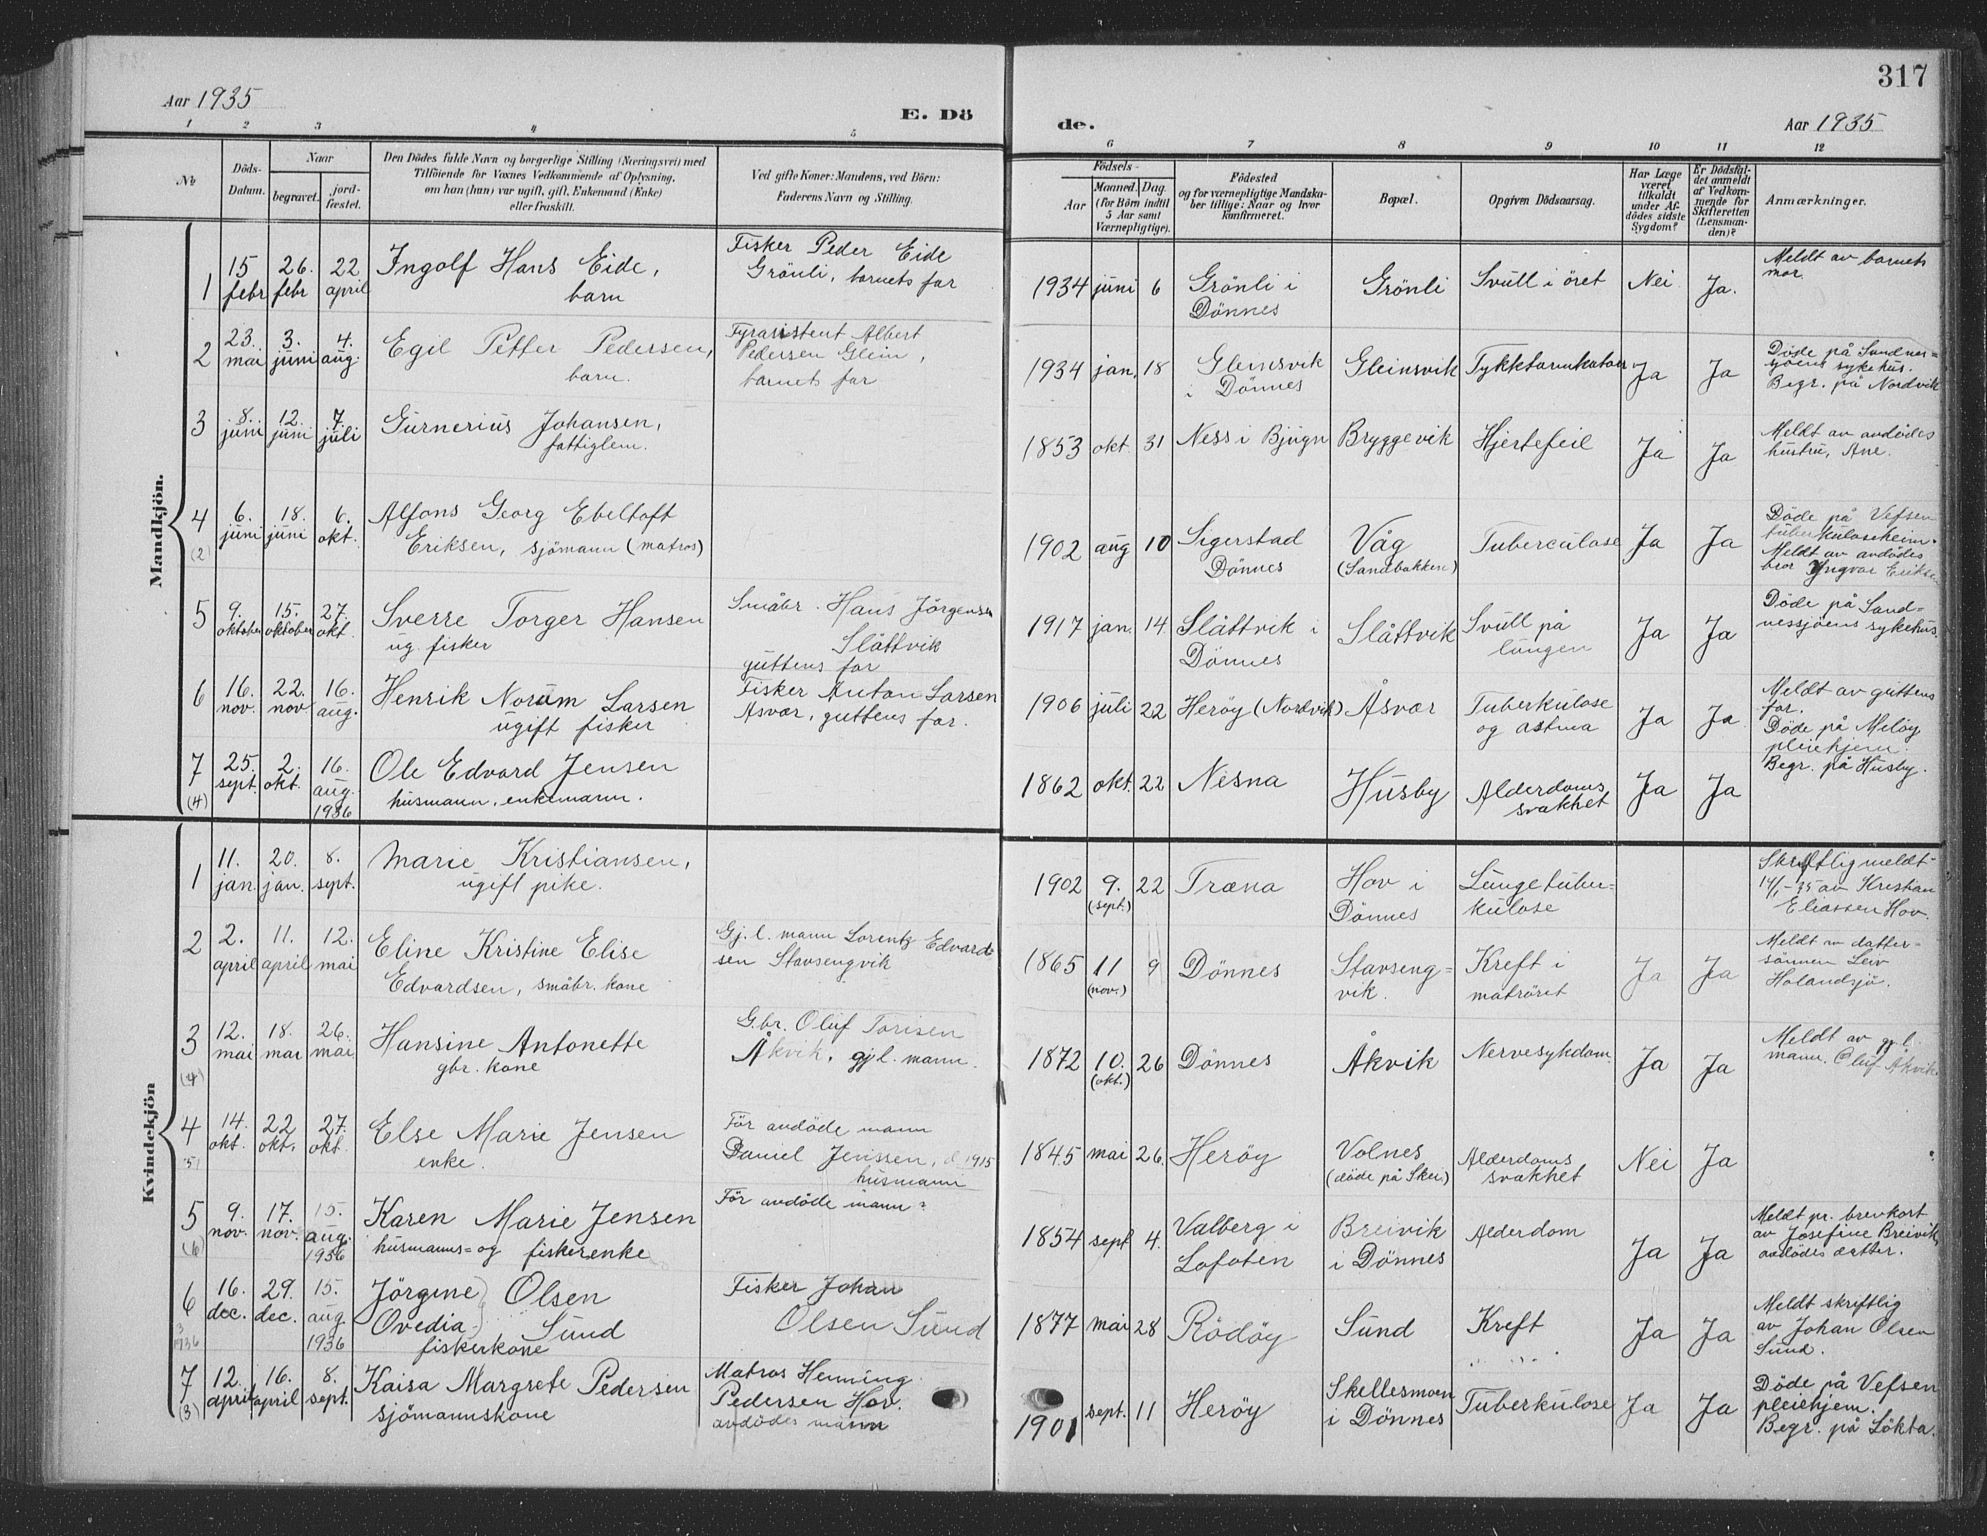 317
Aar 1935
E. Dö
de.
Aar 1935
1 2 3 4 5 6 7 8 9 10 11 12
No
Döds-
Datum.
Naar
begravet.
jord-
fæstet.
Den Dödes fulde Navn og borgerlige Stilling (Næringsvei) med
Tilföiende for Voxnes Vedkommende af Oplysning,
om han (hun) var ugift, gift, Enkemand (Enke)
eller fraskilt.
Ved gifte Koner: Mandens, ved Börn:
Faderens Navn og Stilling.
Födsels-
Aar
Maaned. Dag.
(for Börn indtil
5 Aar samt
Værnepligtige).
Födested
og for værnepligtige Mandska-
ber tillige: Naar og hvor
konfirmeret.
Bopæl.
Opgiven Dödsaarsag.
Har Læge
været
tilkaldt
under Af-
dödes sidste
Sygdom?
Er Dödsfal-
det anmeldt
af Vedkom-
mende for
Skifteretten
(Lensman-
den)?
Anmærkninger.
Mandkjön.
1 15 febr 26. febr 22 april Ingolf Hans Eide,
barn
Fisker Peder Eide
Grönli, barnets far
1934 juni 6 Grönli i
Dönnes
Grönli Svull i öret Nei Ja.
Meldt av barnets
mor
2 23. mai 3. juni 4. aug. Egil Petter Pedersen,
barn.
Fyrassistent Albert
Pedersen Glein,
barnets far
1934 jan. 18 Gleinsvik
i Dönnes
Gleinsvik Tykktarmkatarr Ja Ja
Döde på Sandnes=
sjöens sykehus.
Begr. på Nordvik
3 8. juni 12. juni 7. juli Gurnerius Johansen,
fattiglem.
1853 okt. 31 Ness i Bjugn Bryggevik Hjertefeil Ja Ja
Meldt av avdödes
hustru, Ane.
4 (2) 6. juni 18. juni 6. okt. Alfons Georg Ebeltoft
Eriksen, sjömann (matros)
1902 aug 10 Sigerstad
Dönnes
Våg
(Sandbakken)
Tuberculose Ja Ja
Döde på Vefsen
tuberkuloseheim.
Meldt av avdödes
bror Yngvar Eriksen
5 9. oktober 15. oktober 27. okt. Sverre Torger Hansen
ug. fisker
Småbr. Hans Jörgensen
Slåttvik
guttens far
1917 jan. 14. Slåttvik i
Dönnes
Slåttvik Svull på
lungen
Ja Ja
Döde på Sand=
nessjöens sykehus.
6 16. nov. 22. nov 16. aug. Henrik Norum Larsen
ugift fisker
Fisker Anton Larsen
Åsvær, guttens far.
1906 juli 22 Heröy (Nordvik) Åsvær Tuberkulose
og astma
Ja Ja
Meldt av guttens
far.
7 (4) 25. sept. 2. okt. 16. aug. 1936 Ole Edvard Jensen
husmann, enkemann.
1862 okt. 22 Nesna Husby Alderdoms
svakhet
Ja Ja
Döde på Melöy
pleiehjem.
Begr. på Husby.
Kvindekjön
1 11. jan. 20. jan. 8. sept. Marie Kristiansen,
ugift pike.
1902 9. (sept.) 22 Træna Hov i
Dönnes
Lungetuber=
kulose
Skriftlig meldt
14/1-35 av Kristian
Eliassen Hov.
2 2. april 11. april 12. mai Eline Kristine Elise
Edvardsen, småbr. kone
Gj. l. mann Lorentz Edvard-
sen Stavsengvik
1865 11 (nov.) 9 Dönnes Stavseng=
vik.
Kreft i
matröret
Ja Ja
Meldt av datter-
sönnen Leiv
Holandsjö.
3 (4) 12. mai 18. mai 26. mai Hansine Antonette
gbr. kone
G.br. Oluf Torisen
Åkvik, gjl. mann.
1872 10. (okt.) 26 Dönnes Åkvik Nervesykdom Ja Ja
Meldt av gjl.
mann. Oluf Åkvik
4 (5) 14. okt. 22 okt. 27. okt. Else Marie Jensen
enke.
För avdöde mann
Daniel Jenssen, d 1915
husmann
1845 mai 26. Heröy Volnes
(döde på Skei)
Alderdoms
svakhet
Nei Ja
5 (6) 9. nov. 17. nov. 15. aug. 1936 Karen Marie Jensen
husmanns- og fiskerenke
För avdöde mann?
1854 sept 4. Valberg i
Lofoten
Breivik
i Dönnes
Alderdom Ja Ja
Meldt pr. brevkort
av Josefine Breivik,
avdödes datter.
6 3 1936 16. dec. 29. dec. 15. aug 1936 Jörgine Olsen
Ovedia Sund
fiskerkone
Fisker Johan
Olsen Sund
1877 mai 28 Rödöy Sund Kreft Ja Ja
Meldt skriftlig
av Johan Olsen
Sund.
7 (3) 12. april 16. april 8. sept. Kaisa Margrete Pedersen
sjömannskone
Matros Henning
Pedersen Hov.
avdödes mann
1901 sept. 11 Heröy Skellesmoen
i Dönnes
Tuberkulose Ja Ja
Döde på Vefsen
pleiehjem.
Begr. på Lökta.